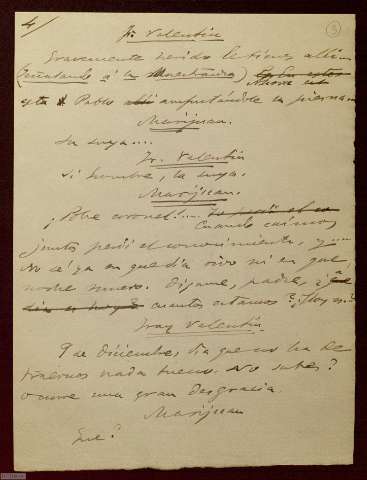 4/
3
Fr. Valentin
Gravemente herido le tienes allí...
(señalando á la
esta Pablo amputándole la pierna
Marijuan.
La suya....
Fr. Valentin
Si hombre, la suya.
Marijuan.
¡Pobre coronel!... Cuando caímos
juntos perdí el conocimiento, y....
No sé ya en que día vivo ni en que
noche muero. Dígame, padre, ¿
cuantos estamos?
Fray Valentin
9 de Diciembre, día que no ha de
traernos nada bueno. No sabes?
Ocurre una gran desgracia.
Marijuan
Qué?